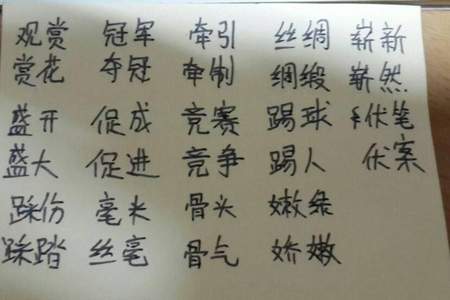 观赏 冠军 牵引 丝绸 崭新
赏花 夺冠 牵制 绸缎 崭然
盛开 促成 竞赛 踢球 伏笔
盛大 促进 竞争 踢人 伏案
踩伤 毫米 骨头 嫩绿
踩踏 丝毫 骨气 娇嫩